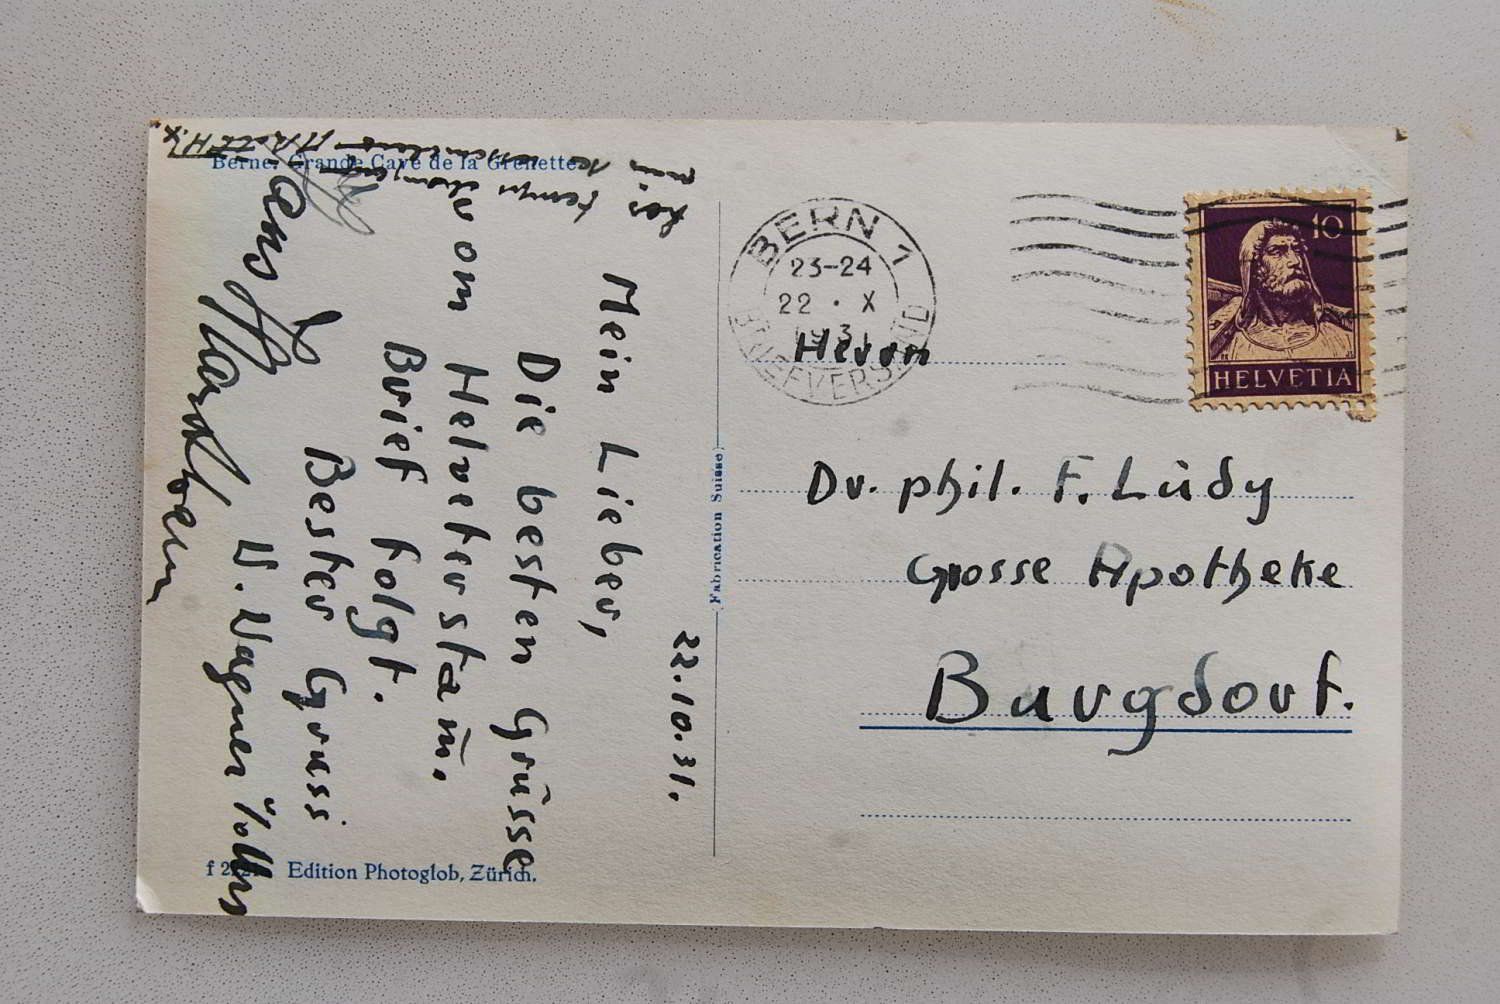 Berne, Grande Cave de la Grenette
22.10.31.
Mein Lieber,
Die besten Grüsse
vom Helveterstam̄.
Brief folgt.
Bester Gruss
W. Wagner
Hans
Edition Photoglob, Zürich.
Fabrication Suisse
BERN 1
23-24
22 · X
1931
BRIEFVERSAND
10
HELVETIA
Herrn
Dr. phil. F. Lüdy
Grosse Apotheke
Burgdorf.